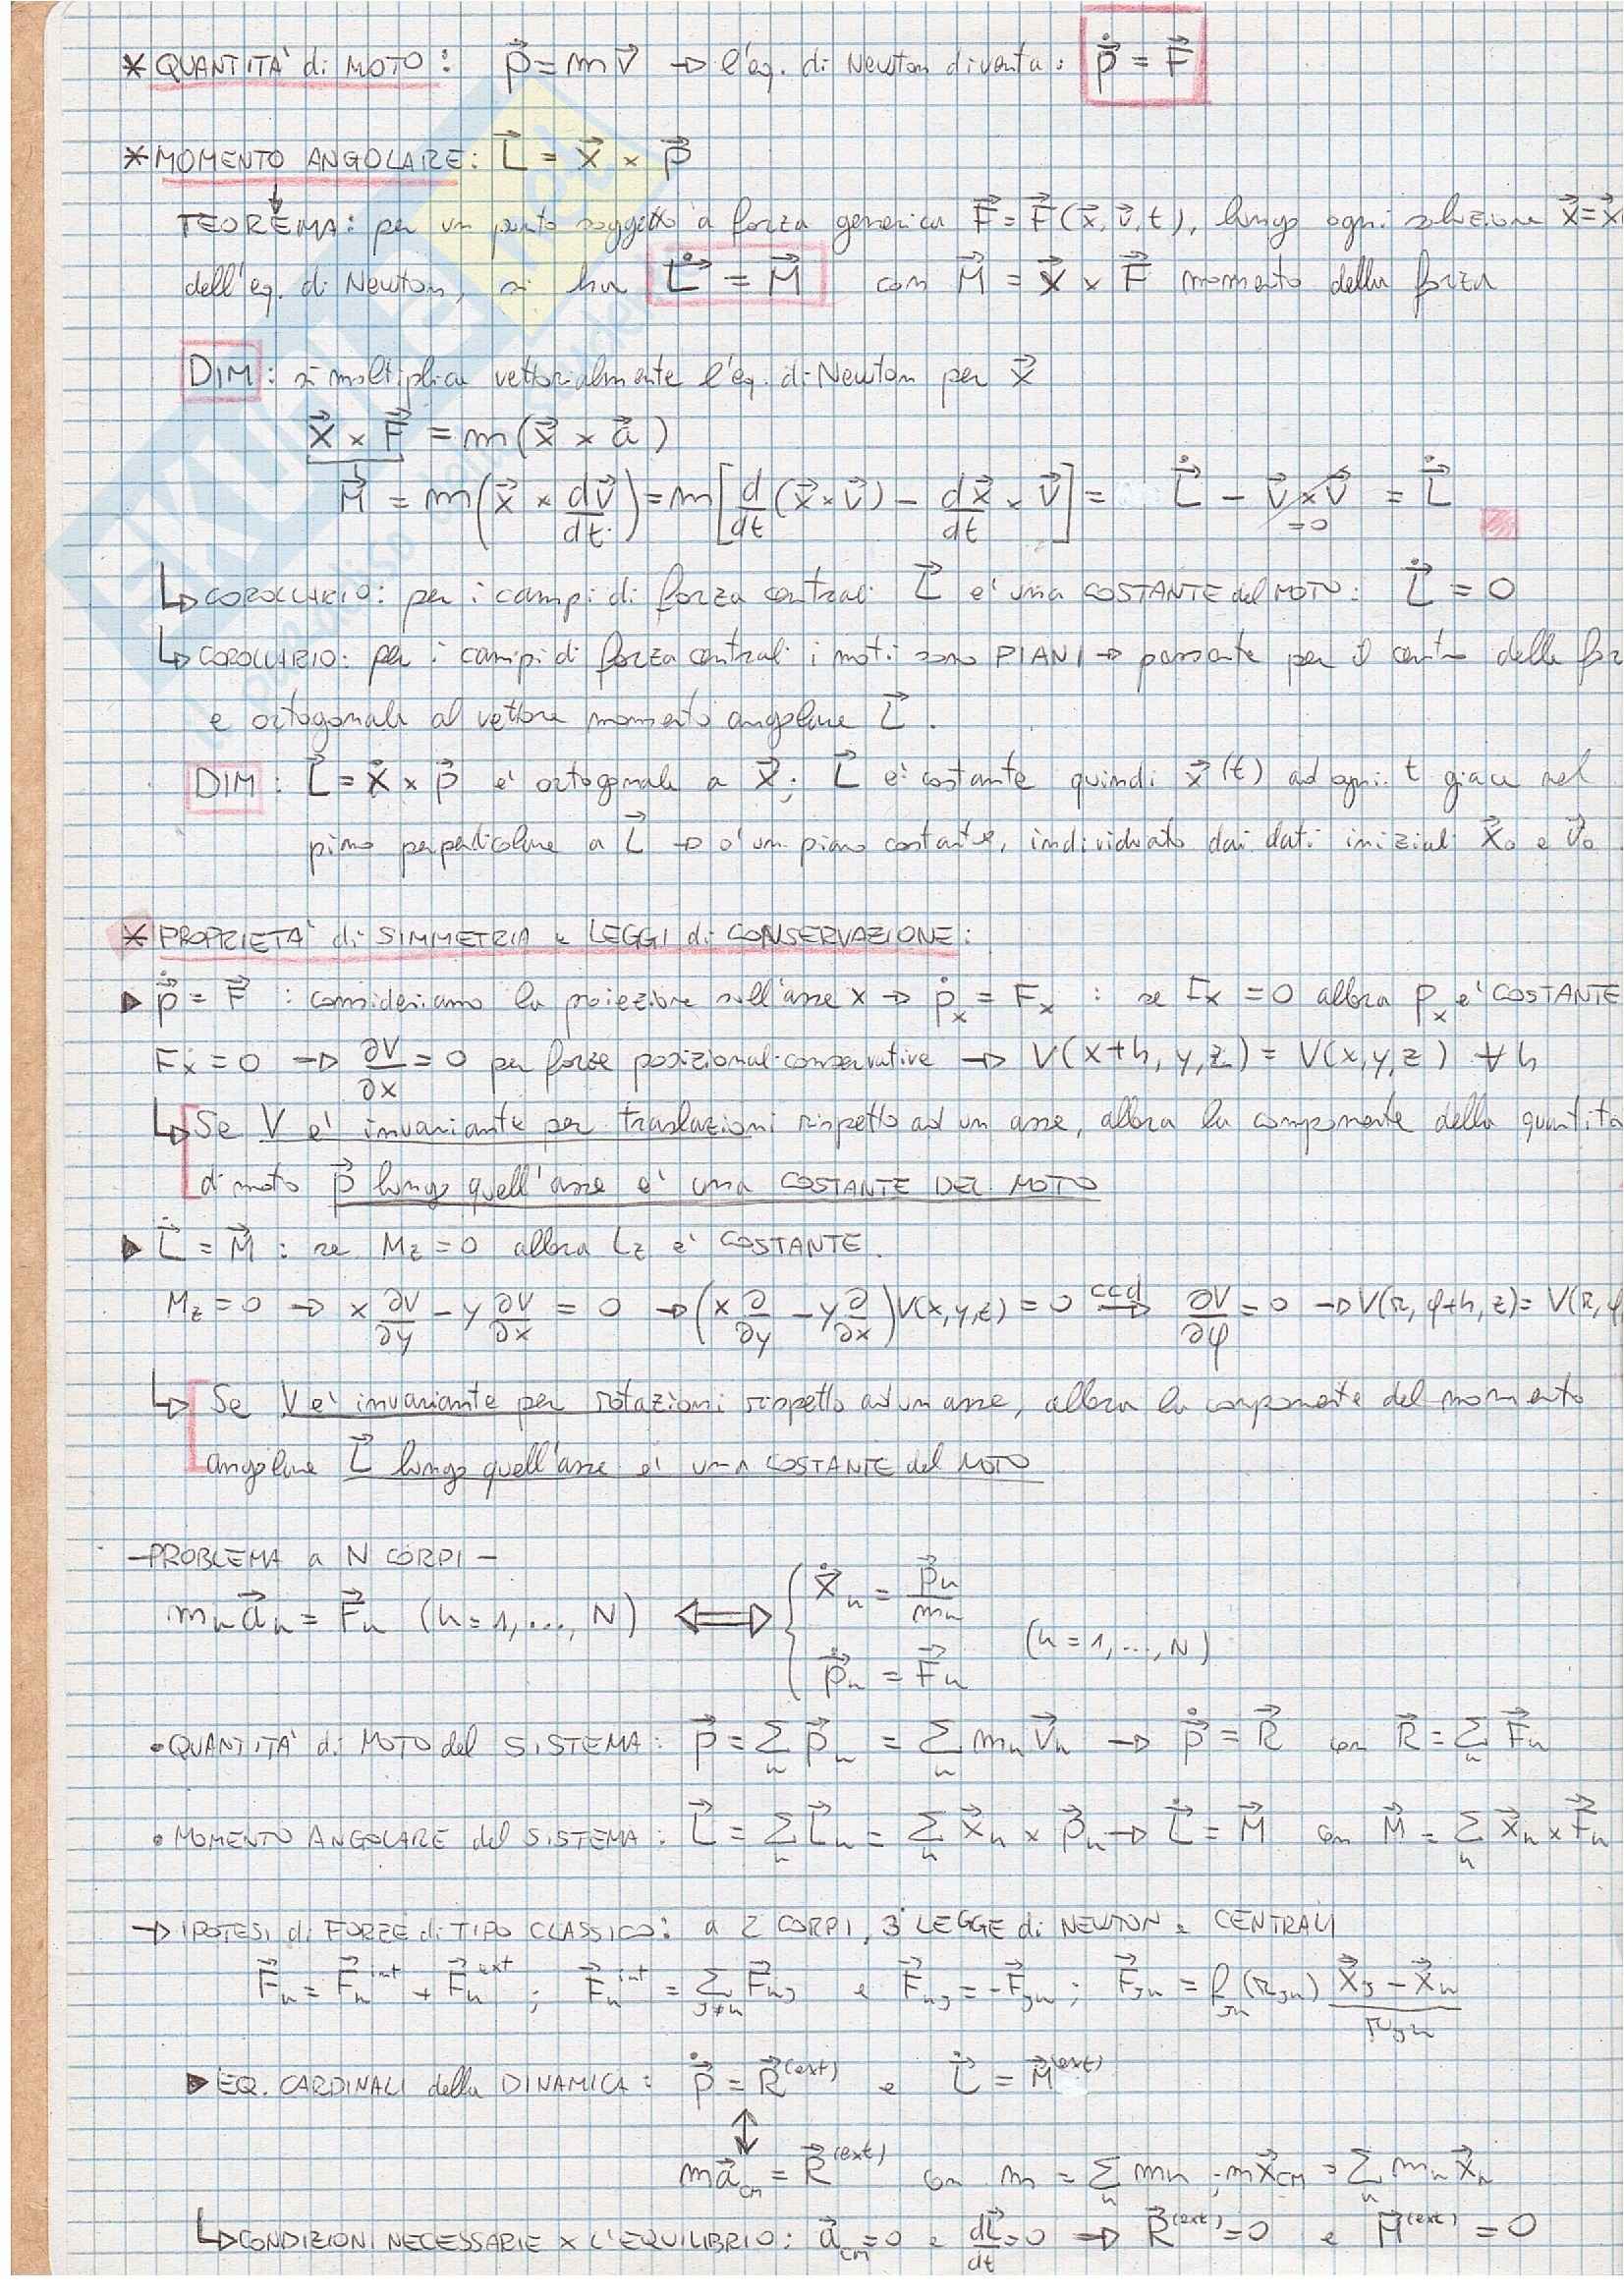 * QUANTITA' di MOTO: p⃗ = m v⃗ → l'eq. di Newton diventa: ṗ⃗ = F⃗
* MOMENTO ANGOLARE: L⃗ = x⃗ × p⃗
TEOREMA: per un punto soggetto a forza generica F⃗ = F⃗(x⃗, v⃗, t), lungo ogni soluzione x⃗ = x
dell'eq. di Newton, si ha L̇⃗ = M⃗ con M⃗ = x⃗ × F⃗ momento della forza
DIM: si moltiplica vettorialmente l'eq. di Newton per x⃗
x⃗ × F⃗ = m(x⃗ × a⃗)
M⃗ = m(x⃗ × dv⃗/dt) = m[d/dt (x⃗ × v⃗) - dx⃗/dt × v⃗] = L̇⃗ - v⃗ × v⃗ = L̇⃗
=0
↳ COROLLARIO: per i campi di forza centrali L⃗ e' una COSTANTE del MOTO: L̇⃗ = 0
↳ COROLLARIO: per i campi di forza centrali i moti sono PIANI → passante per il centro delle for
e ortogonale al vettore momento angolare L⃗.
DIM: L⃗ = x⃗ × p⃗ e' ortogonale a x⃗; L⃗ e' costante quindi x⃗(t) ad ogni t giace nel
piano perpendicolare a L⃗ → e' un piano costante, individuato dai dati iniziali x⃗₀ e v⃗₀.
* PROPRIETA' di SIMMETRIA e LEGGI di CONSERVAZIONE:
▶ ṗ⃗ = F⃗ : consideriamo la proiezione sull'asse x → ṗₓ = Fₓ : se Fₓ = 0 allora pₓ e' COSTANTE
Fₓ = 0 → ∂V/∂x = 0 per forze posizionali conservative → V(x+h, y, z) = V(x, y, z) ∀ h
↳ Se V e' invariante per traslazioni rispetto ad un asse, allora la componente della quantità
di moto p⃗ lungo quell'asse e' una COSTANTE DEL MOTO
▶ L̇⃗ = M⃗ : se M_z = 0 allora L_z e' COSTANTE.
M_z = 0 → x ∂V/∂y - y ∂V/∂x = 0 → (x ∂/∂y - y ∂/∂x) V(x, y, z) = 0 →(ccd) ∂V/∂φ = 0 → V(r, φ+h, z) = V(r, φ
↳ Se V e' invariante per rotazioni rispetto ad un asse, allora la componente del momento
angolare L⃗ lungo quell'asse e' una COSTANTE del MOTO
- PROBLEMA a N CORPI -
m_k a⃗_k = F⃗_k (k = 1, ..., N) ⟺ { ẋ⃗_k = p⃗_k/m_k
ṗ⃗_k = F⃗_k (k = 1, ..., N)
• QUANTITA' di MOTO del SISTEMA: p⃗ = Σ_k p⃗_k = Σ_k m_k v⃗_k → ṗ⃗ = R⃗ con R⃗ = Σ_k F⃗_k
• MOMENTO ANGOLARE del SISTEMA: L⃗ = Σ_k L⃗_k = Σ_k x⃗_k × p⃗_k → L̇⃗ = M⃗ con M⃗ = Σ_k x⃗_k × F⃗_k
→ IPOTESI di FORZE di TIPO CLASSICO: a 2 CORPI, 3ª LEGGE di NEWTON e CENTRALI
F⃗_k = F⃗_k^int + F⃗_k^ext ; F⃗_k^int = Σ_{j≠k} F⃗_kj e F⃗_kj = -F⃗_jk ; F⃗_jk = f_jk(r_jk) (x⃗_j - x⃗_k)/r_jk
▶ EQ. CARDINALI della DINAMICA: ṗ⃗ = R⃗^(ext) e L̇⃗ = M⃗^(ext)
↕
m a⃗_cm = R⃗^(ext) con m = Σ_k m_k ; m x⃗_CM = Σ_k m_k x⃗_k
↳ CONDIZIONI NECESSARIE x L'EQUILIBRIO: a⃗_cm = 0 e dL⃗/dt = 0 → R⃗^(ext) = 0 e M⃗^(ext) = 0